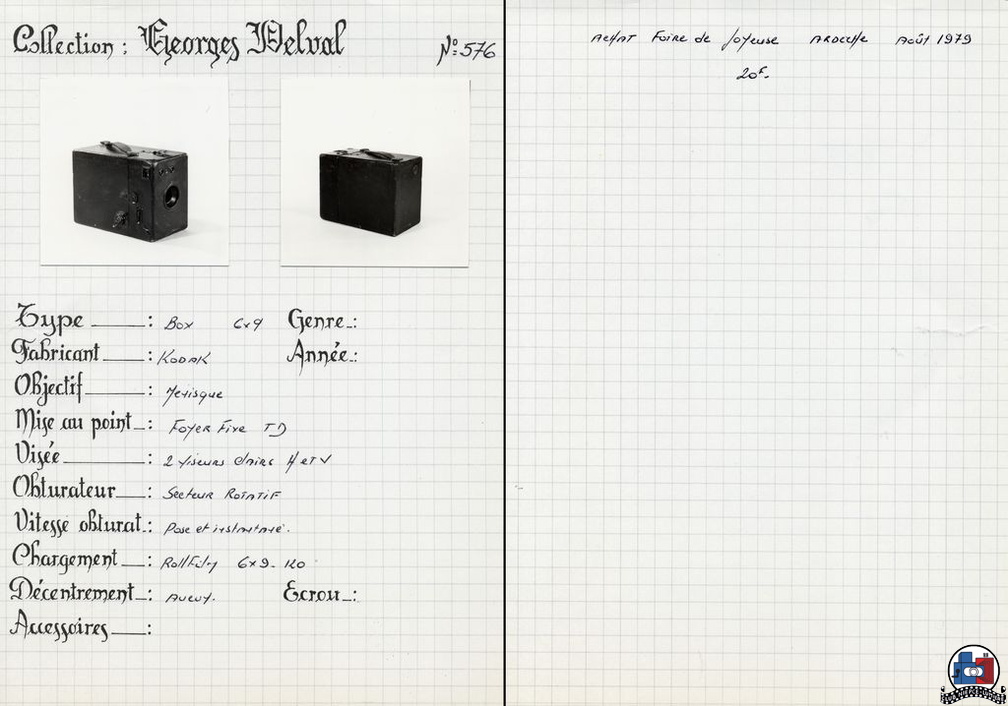 Collection : Georges Delval N°: 576
Type : Box 6x9 Genre :
Fabricant : KODAK Année :
Objectif : Menisque
Mise au point : Foyer Fixe TD
Visée : 2 viseurs clairs H et V
Obturateur : Secteur Rotatif
Vitesse obturat. : Pose et instantané.
Chargement : Rollfilm 6x9 - 120
Décentrement : Aucun. Ecrou :
Accessoires :
Achat Foire de Joyeuse Ardeche Août 1979
20F.